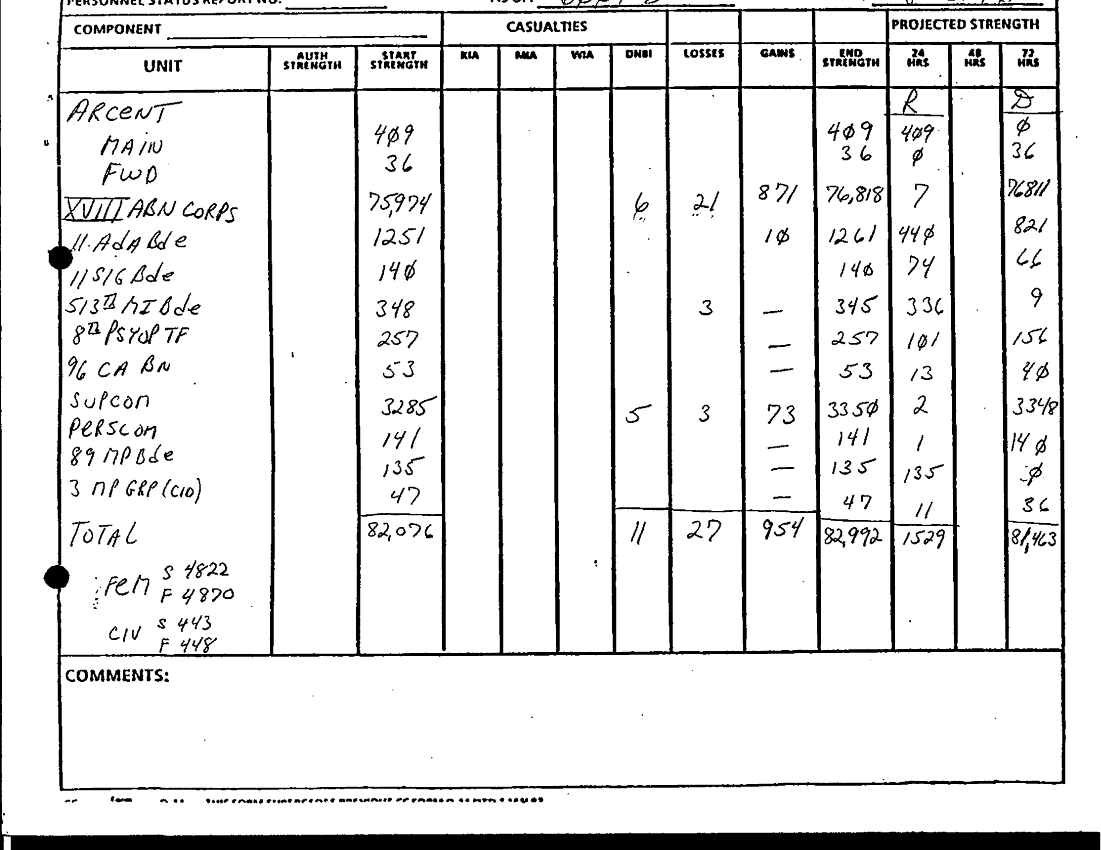 PERSONNEL STATUS REPORT NO.
COMPONENT CASUALTIES PROJECTED STRENGTH
UNIT AUTH STRENGTH START STRENGTH KIA MIA WIA DNBI LOSSES GAINS END STRENGTH 24 HRS 48 HRS 72 HRS
ARCENT R D
MAIN 4φ9 4φ9 4φ9 φ
FWD 36 36 φ 36
XVIII ABN CORPS 75,974 6 21 871 76,818 7 76811
11 AdA Bde 1251 1φ 1261 44φ 821
11 SIG Bde 14φ 14φ 74 66
513th MI Bde 348 3 — 345 336 9
8th PSYOP TF 257 — 257 1φ1 156
96 CA BN 53 — 53 13 4φ
SUPCOM 3285 5 3 73 335φ 2 3348
PERSCOM 141 — 141 1 14φ
89 MP Bde 135 — 135 135 φ
3 MP GRP (CID) 47 — 47 11 36
TOTAL 82,076 11 27 954 82,992 1529 81,463
Fem S 4822
F 4870
CIV S 443
F 448
COMMENTS: